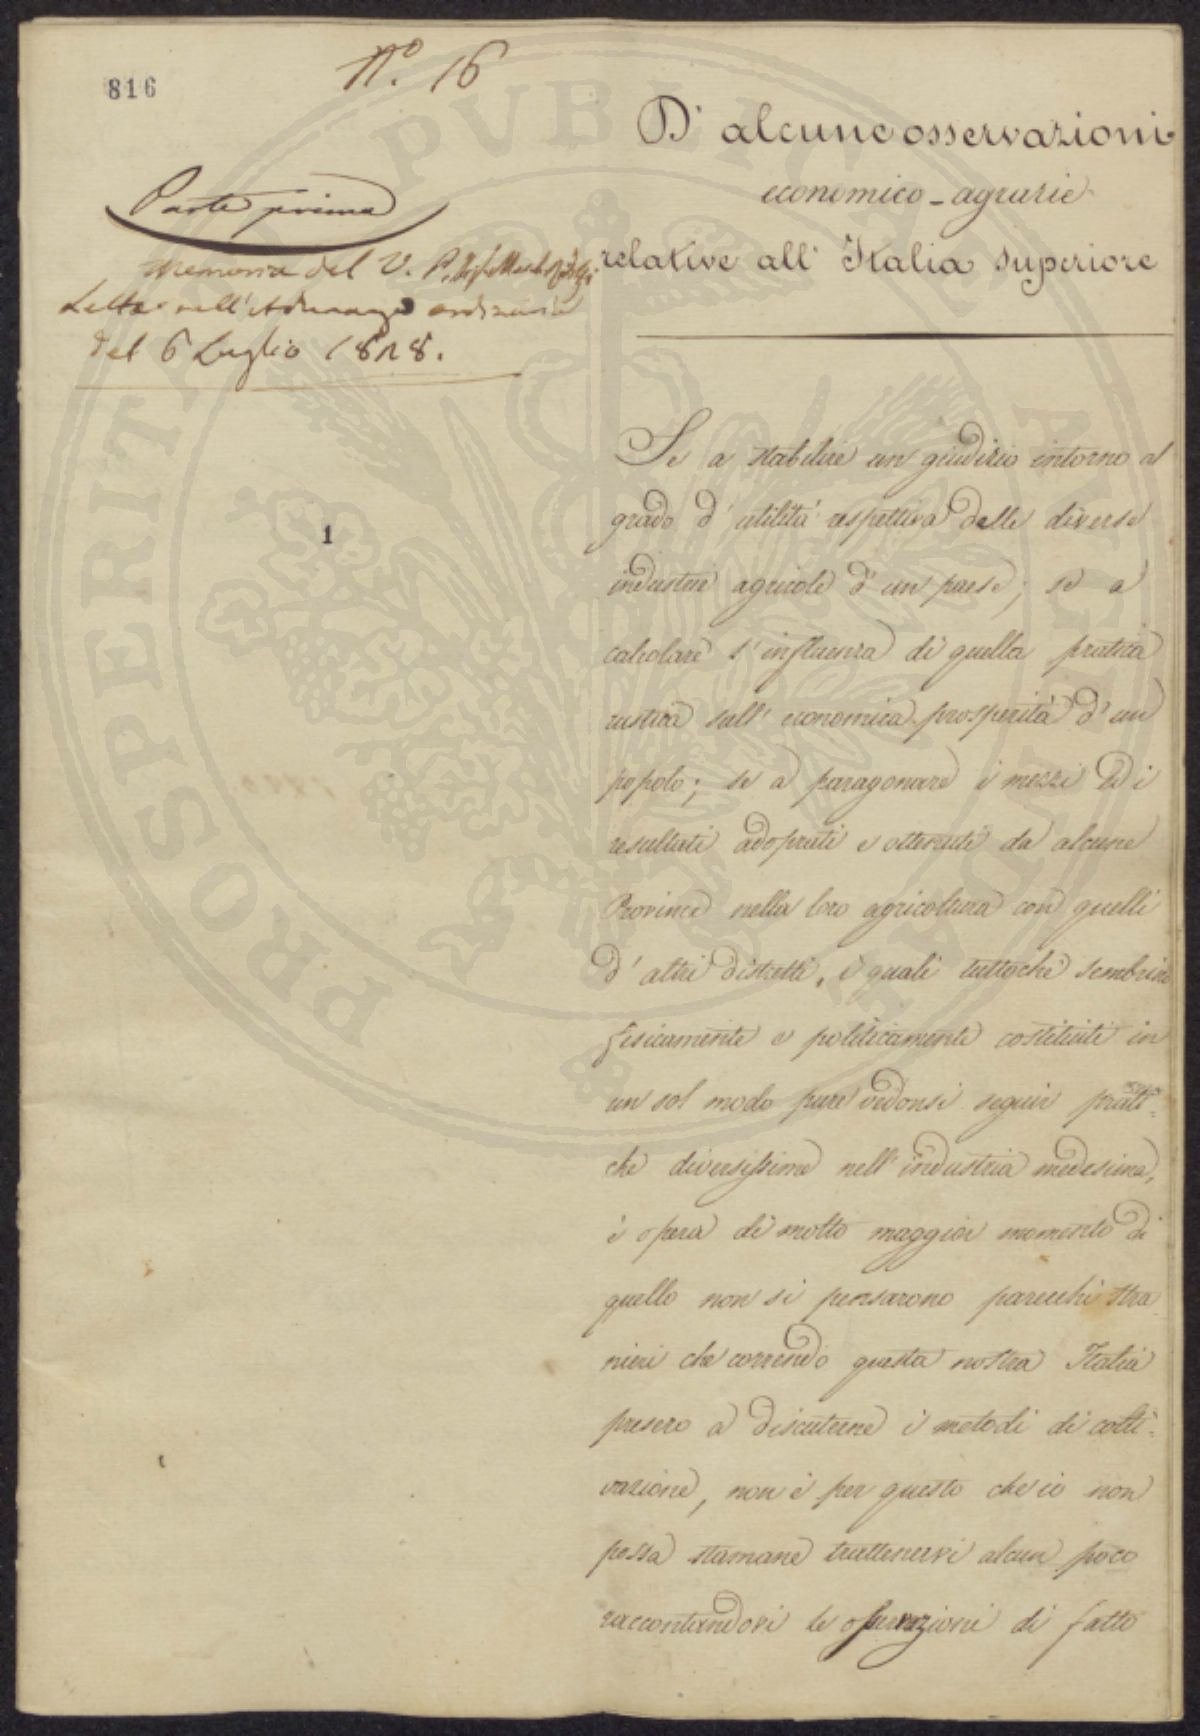 816
N.° 16
D'alcune osservazioni
economico-agrarie
relative all'Italia superiore
Parte prima
Memoria del V. P.
Letta nell'Adunanza ordinaria
del 6 Luglio 1828.
1
Se a stabilire un giudizio intorno al
grado d'utilità respettiva delle diverse
industrie agricole d'un paese; se a
calcolare l'influenza di quella pratica
rustica sull'economica prosperità d'un
popolo; se a paragonare i mezzi ed i
resultati adoprati e ottenuti da alcune
Province nella loro agricoltura con quelli
d'altri distretti, i quali tuttochè sembrino
fisicamente e politicamente costituiti in
un sol modo pure vedonsi seguir prati-
che diversissime nell'industria medesima,
è opera di molto maggior momento di
quello non si pensarono parecchi stra
nieri che correndo questa nostra Italia
presero a discuterne i metodi di colti-
vazione, non è per questo che io non
possa stamane trattenervi alcun poco
raccontandovi le osservazioni di fatto
PUBLICAE
PROSPERITATI